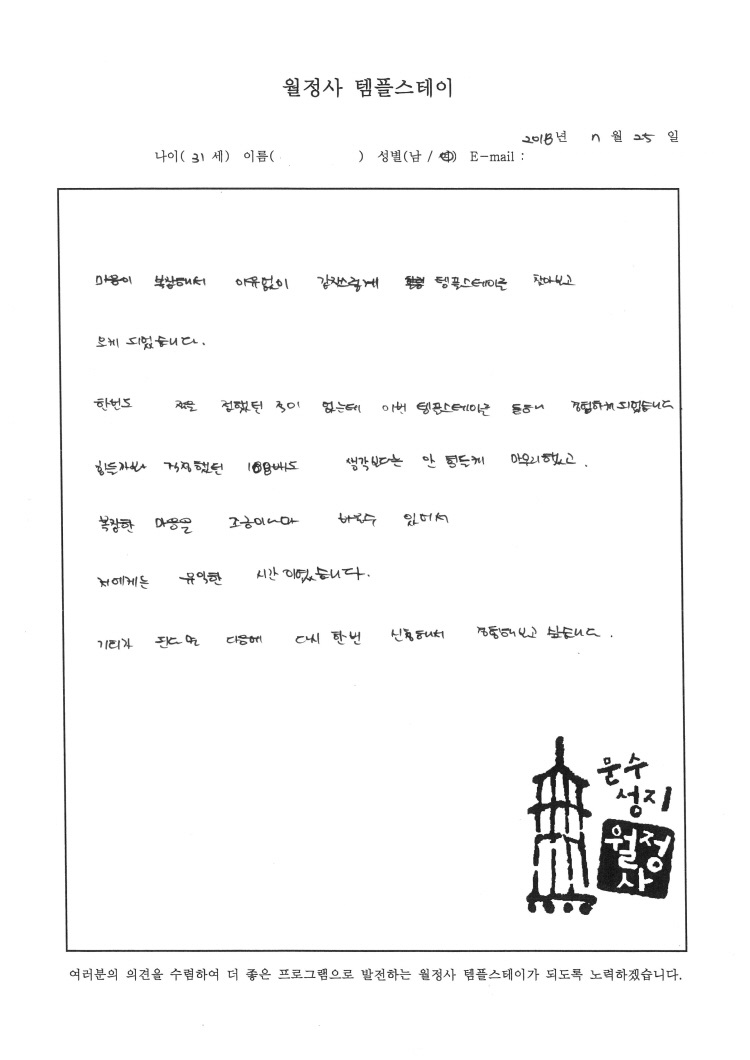 월정사 템플스테이
2018년 7월 25일
나이( 31 세) 이름( ) 성별(남 / 여) E-mail :
마음이 복잡해서 이유없이 갑작스럽게 템플스테이를 찾아보고
오게 되었습니다.
한번도 절을 접했던 적이 없는데 이번 템플스테이를 통해서 경험하게 되었습니다
힘들까봐 걱정했던 108배도 생각보다는 안 힘들게 마무리했고.
복잡한 마음을 조금이나마 비울수 있어서
저에게는 유익한 시간이었습니다.
기회가 된다면 다음에 다시 한번 신청해서 경험해보고 싶습니다.
문수
성지
월정
사
여러분의 의견을 수렴하여 더 좋은 프로그램으로 발전하는 월정사 템플스테이가 되도록 노력하겠습니다.